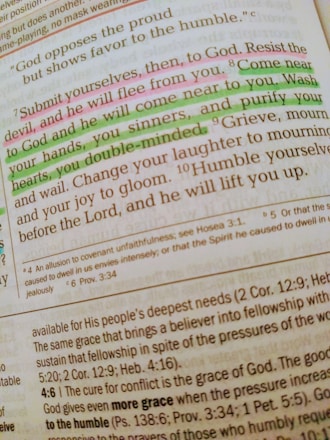 ing but does another.
me-playing, no mask wearing
"God opposes the proud
but shows favor to the humble." c
7 Submit yourselves, then, to God. Resist the
devil, and he will flee from you. 8 Come near
to God and he will come near to you. Wash
your hands, you sinners, and purify your
hearts, you double-minded. 9 Grieve, mourn
and wail. Change your laughter to mourning
and your joy to gloom. 10 Humble yourselve
before the Lord, and he will lift you up.
a 4 An allusion to covenant unfaithfulness; see Hosea 3:1. b 5 Or that the s
caused to dwell in us envies intensely; or that the Spirit he caused to dwell in
jealously c 6 Prov. 3:34
available for His people's deepest needs (2 Cor. 12:9; Heb.
The same grace that brings a believer into fellowship with
sustain that fellowship in spite of the pressures of the wo
5:20; 2 Cor. 12:9; Heb. 4:16).
4:6 | The cure for conflict is the grace of God. The good
God gives even more grace when the pressure increase
to the humble (Ps. 138:6; Prov. 3:34; 1 Pet. 5:5). Go
responsive to the prayers of those who humbly reque